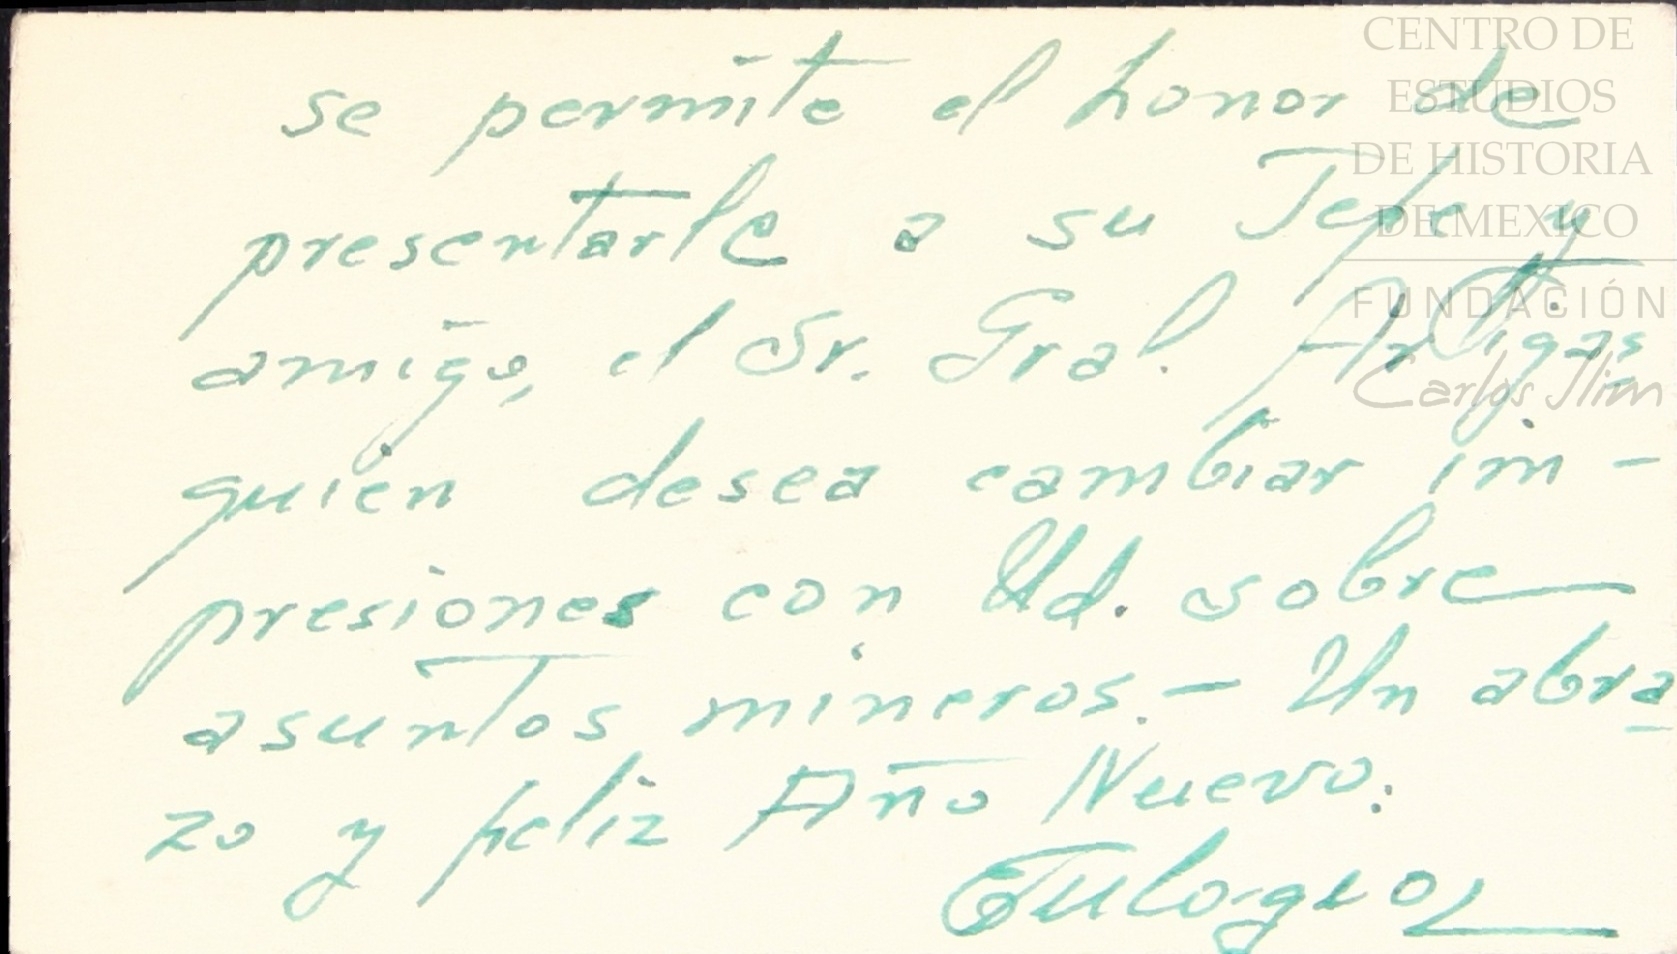 CENTRO DE
ESTUDIOS
DE HISTORIA
DE MEXICO
FUNDACIÓN
Carlos Slim
se permite el honor de
presentarle a su Jefe y
amigo, el Sr. Gral. Artigas
quien desea cambiar im-
presiones con Ud. sobre
asuntos mineros.- Un abra
zo y feliz Año Nuevo.
Eulogio